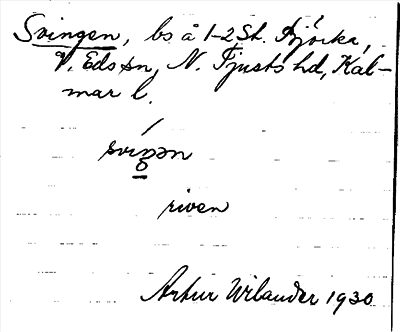 Svingen, bs å 1-2 St. Björka,
V. Eds sn, N. Tjusts hd, Kal-
mar l.
svingen
riven
Artur Wilander 1930